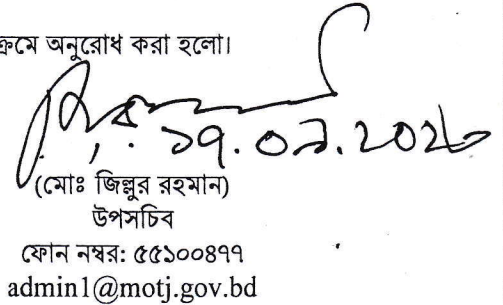 ক্রমে অনুরোধ করা হলো।
(মোঃ জিল্লুর রহমান)
উপসচিব
ফোন নম্বর: ৫৫১০০৪৭৭
admin1@motj.gov.bd